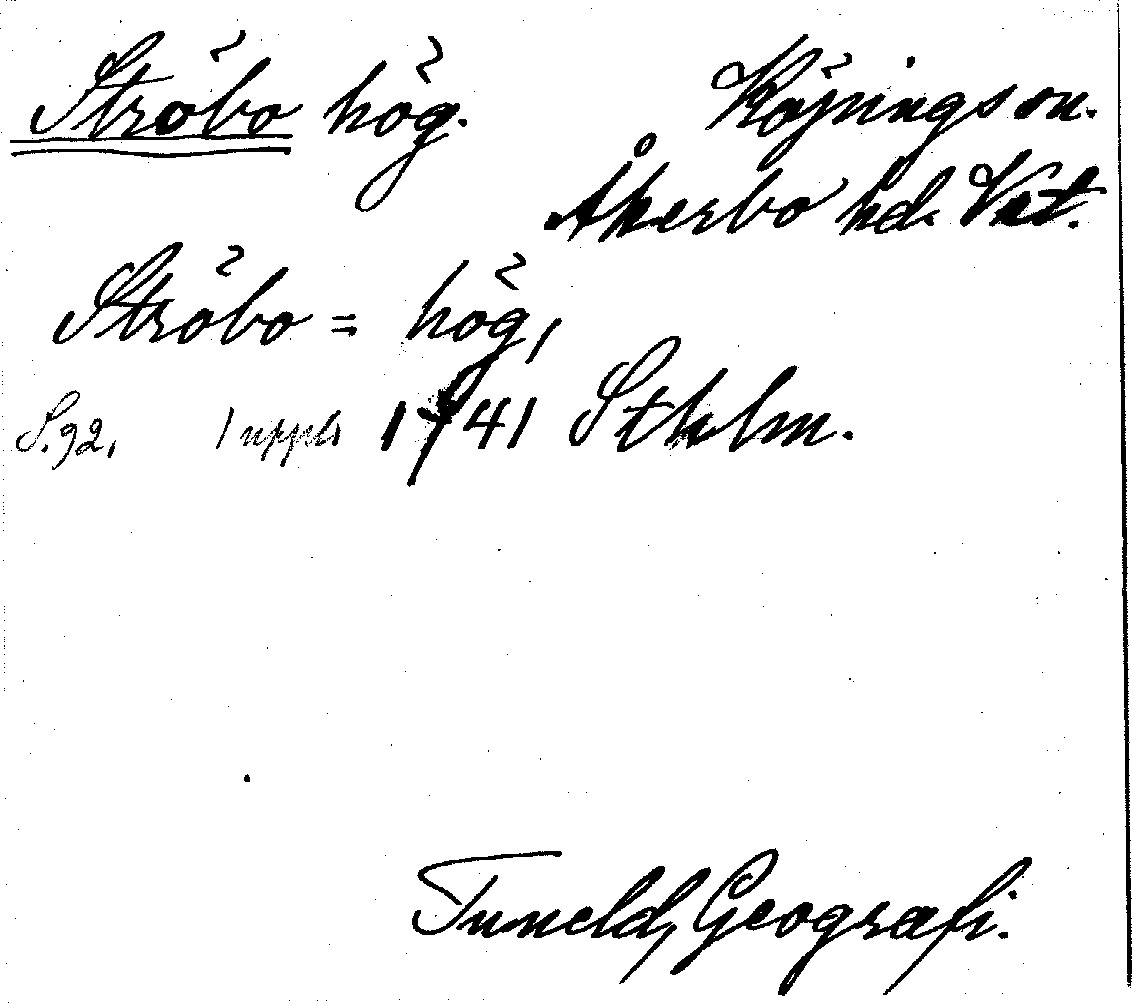 Ströbo hög. Köpings sn.
Åkerbo hd. Vstm.
Ströbo = hög,
S. 92. 1 uppl. 1741 Sthlm.
Tuneld, Geografi.